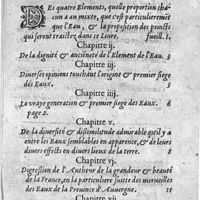 DEs quatre Elements, quelle proportion chacun
a au mixte, que c'est particulierement
que l'Eau, & la proposition des poincts
qui seront traictez dans ce Livre. fueill. 1.
Chapitre ij.
De la dignité & ancienneté de l'Element de l'Eau.
Chapitre iij.
Diverses opinions touchant l'origine & premier siege
des Eaux. 3
Chapitre iiij.
La vraye generation & premier siege des Eaux.
page 5
Chapitre v.
De la diversité & dissimilitude admirable qu'il y a
entre les Eaux semblables en apparence, & de leurs
divers effects en divers lieux de la terre. 8
Chapitre vj.
Digression de l'Autheur de la grandeur & beauté
de la France, en la particuliere suitte des merveilles
des Eaux de la Province d'Auvergne. 18
Chapitre vij.